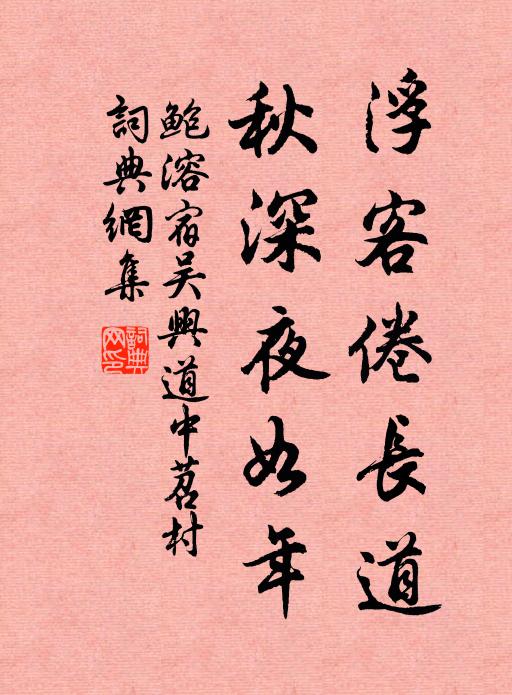 浮客倦長道
秋深夜如年
鮑溶宿吴興道中苕村
詞典網集
詞典網印